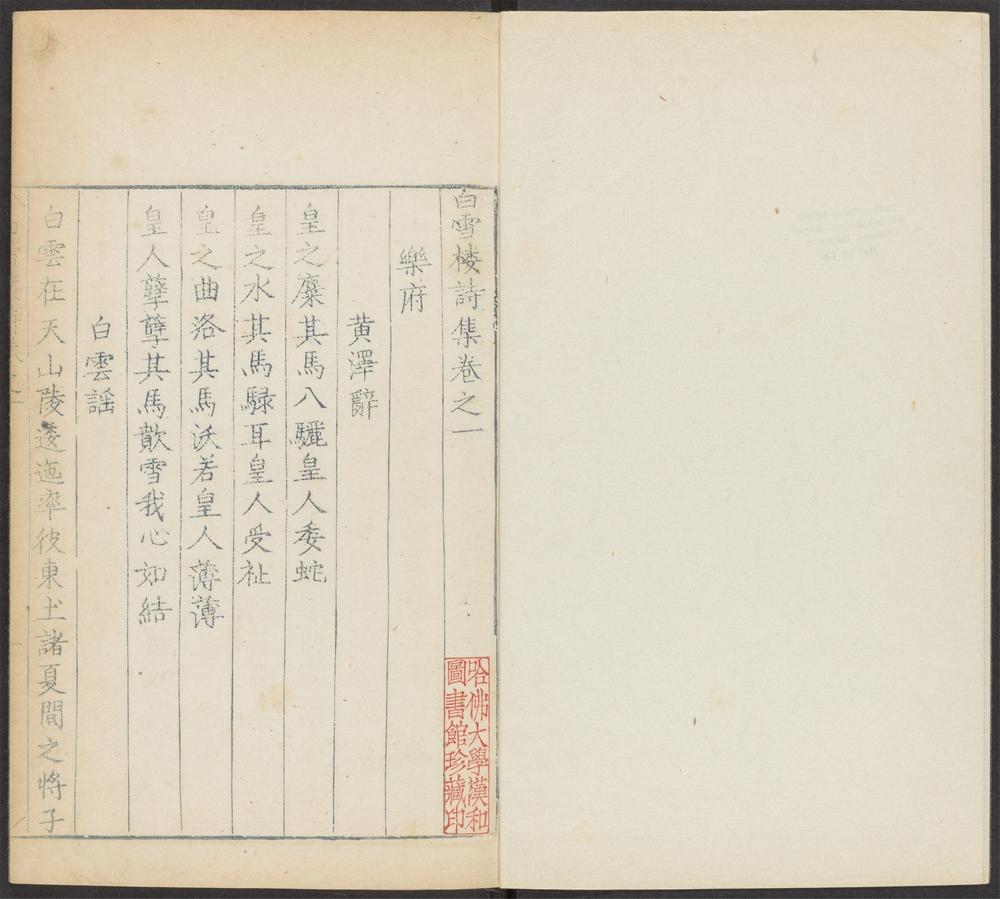 白雪樓詩集卷之一
樂府
黄澤辭
皇之麋其馬八驖皇人委蛇
皇之水其馬騄耳皇人受祉
皇之曲洛其馬沃若皇人薄薄
皇人孽孽其馬歕雪我心如結
白雲謡
白雲在天山陵逶迤率彼東土諸夏間之將子
哈佛大學漢和
圖書館珍藏印